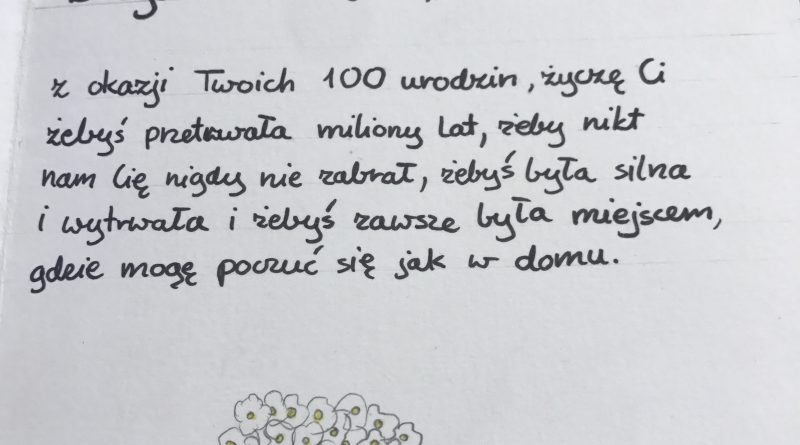 z okazji Twoich 100 urodzin, życzę Ci
żebyś przetrwała miliony lat, żeby nikt
nam Cię nigdy nie zabrał, żebyś była silna
i wytrwała i żebyś zawsze była miejscem,
gdzie mogę poczuć się jak w domu.